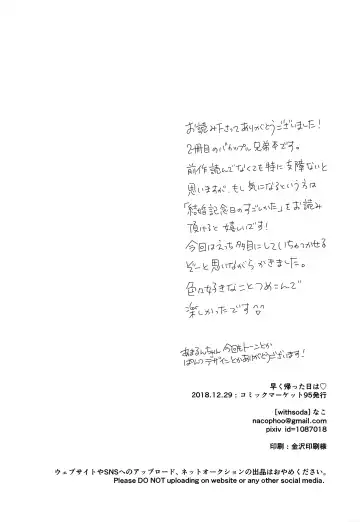 お読み下さってありがとうございました！
2冊目のバカップル兄弟本です。
前作読んでなくても特に支障ないと
思いますが、もし気になるという方は
「結婚記念日のすごしかた」をお読み
頂けると嬉しいです！
今回はえっち多目にしていちゃつかせる
ぞーと思いながらかきました。
色々好きなことつめこんで
楽しかったです
あまるんちゃん今回もトーンとか
ほんのデザインとかありがとうございます！
早く帰った日は♡
2018.12.29：コミックマーケット95発行
[withsoda] なこ
nacophoo@gmail.com
pixiv id=1087018
印刷：金沢印刷様
ウェブサイトやSNSへのアップロード、ネットオークションの出品はおやめください。
Please DO NOT uploading on website or any other social media.